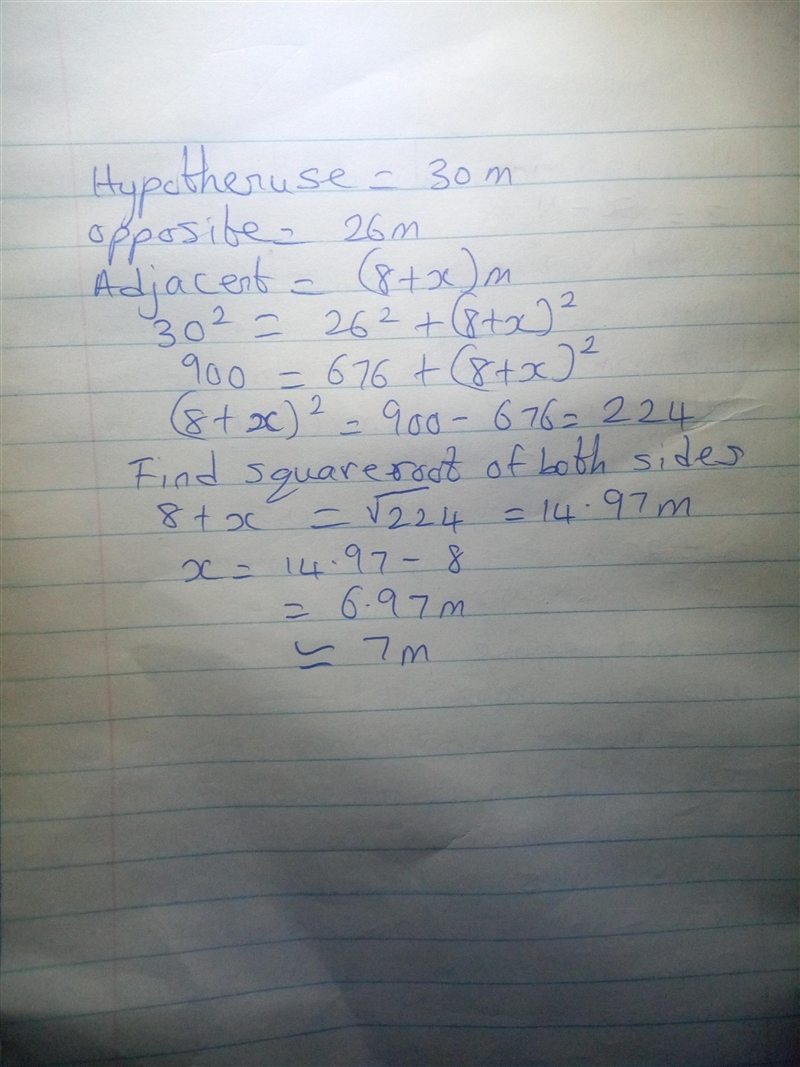 Hypothenuse = 30m
opposite = 26m
Adjacent = (8+x)m
30² = 26² + (8+x)²
900 = 676 + (8+x)²
(8+x)² = 900 - 676 = 224
Find squareroot of both sides
8 + x = √224 = 14.97m
x = 14.97 - 8
= 6.97m
≃ 7m